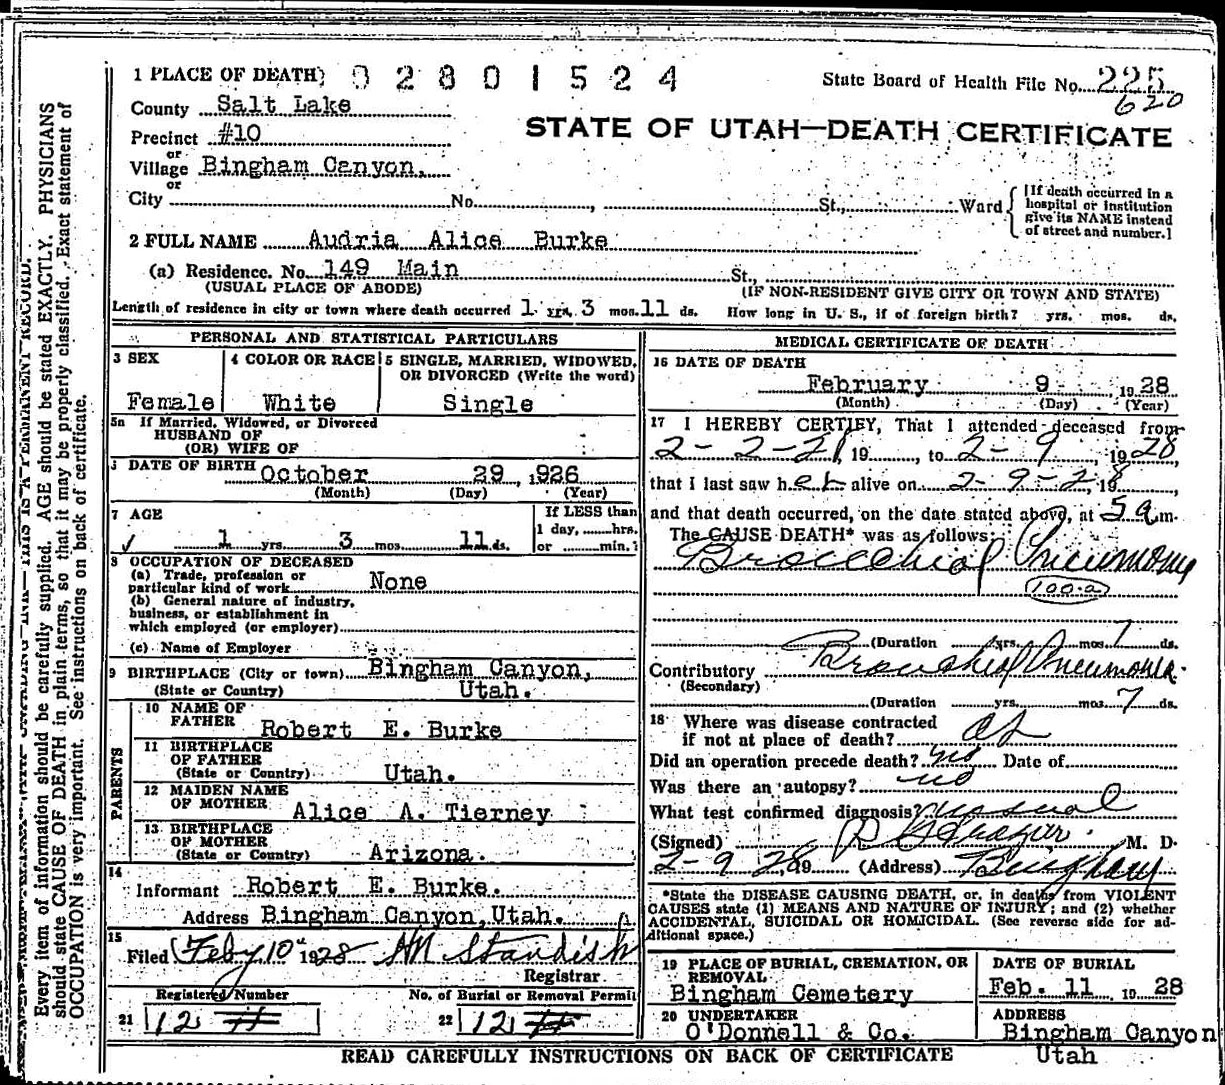 1 PLACE OF DEATH) 0 2 8 0 1 5 2 4 State Board of Health File No. 225
County Salt Lake 620
Precinct #10 STATE OF UTAH—DEATH CERTIFICATE
or
Village Bingham Canyon,
or
City No. , St., Ward
[If death occurred in a
hospital or institution
give its NAME instead
of street and number.]
2 FULL NAME Audria Alice Burke
(a) Residence. No. 149 Main St.,
(USUAL PLACE OF ABODE) (IF NON-RESIDENT GIVE CITY OR TOWN AND STATE)
Length of residence in city or town where death occurred 1 yrs. 3 mos. 11 ds. How long in U. S., if of foreign birth? yrs. mos. ds.
PERSONAL AND STATISTICAL PARTICULARS
3 SEX 4 COLOR OR RACE 5 SINGLE, MARRIED, WIDOWED,
OR DIVORCED (Write the word)
Female White Single
5a If Married, Widowed, or Divorced
HUSBAND OF
(OR) WIFE OF
DATE OF BIRTH October 29, 1926
(Month) (Day) (Year)
7 AGE If LESS than
1 day, hrs.
1 yrs. 3 mos. 11 ds. or min.?
8 OCCUPATION OF DECEASED
(a) Trade, profession or
particular kind of work None
(b) General nature of industry,
business, or establishment in
which employed (or employer)
(c) Name of Employer
9 BIRTHPLACE (City or town) Bingham Canyon,
(State or Country) Utah.
PARENTS
10 NAME OF
FATHER Robert E. Burke
11 BIRTHPLACE
OF FATHER
(State or Country) Utah.
12 MAIDEN NAME
OF MOTHER Alice A. Tierney
13 BIRTHPLACE
OF MOTHER
(State or Country) Arizona.
14
Informant Robert E. Burke.
Address Bingham Canyon, Utah.
15
Filed Feby 10" 1928 HM Standish
Registrar
Registered Number No. of Burial or Removal Permit
21 12 22 12
MEDICAL CERTIFICATE OF DEATH
16 DATE OF DEATH
February 9 1928
(Month) (Day) (Year)
17 I HEREBY CERTIFY, That I attended deceased from
2-2-28, 19 , to 2-9, 1928,
that I last saw her alive on 2-9-28, 19 ,
and that death occurred, on the date stated above, at 5 a m.
The CAUSE DEATH* was as follows:
Bronchial Pneumonia
100-a
(Duration yrs. mos. 7 ds.
Contributory Bronchial Pneumonia.
(Secondary)
(Duration yrs. mos. 7 ds.
18 Where was disease contracted
if not at place of death?
Did an operation precede death? no Date of
Was there an autopsy? no
What test confirmed diagnosis?
(Signed) Frazier M. D.
2-9 28, 19 (Address) Bingham
*State the DISEASE CAUSING DEATH, or, in deaths from VIOLENT
CAUSES state (1) MEANS AND NATURE OF INJURY; and (2) whether
ACCIDENTAL, SUICIDAL OR HOMICIDAL. (See reverse side for ad-
ditional space.)
19 PLACE OF BURIAL, CREMATION, OR
REMOVAL
Bingham Cemetery
DATE OF BURIAL
Feb. 11 1928
20 UNDERTAKER
O'Donnell & Co.
ADDRESS
Bingham Canyon
Utah
READ CAREFULLY INSTRUCTIONS ON BACK OF CERTIFICATE
Every item of information should be carefully supplied. AGE should be stated EXACTLY. PHYSICIANS
should state CAUSE OF DEATH in plain terms, so that it may be properly classified. Exact statement of
OCCUPATION is very important. See instructions on back of certificate.
THIS IS A PERMANENT RECORD.